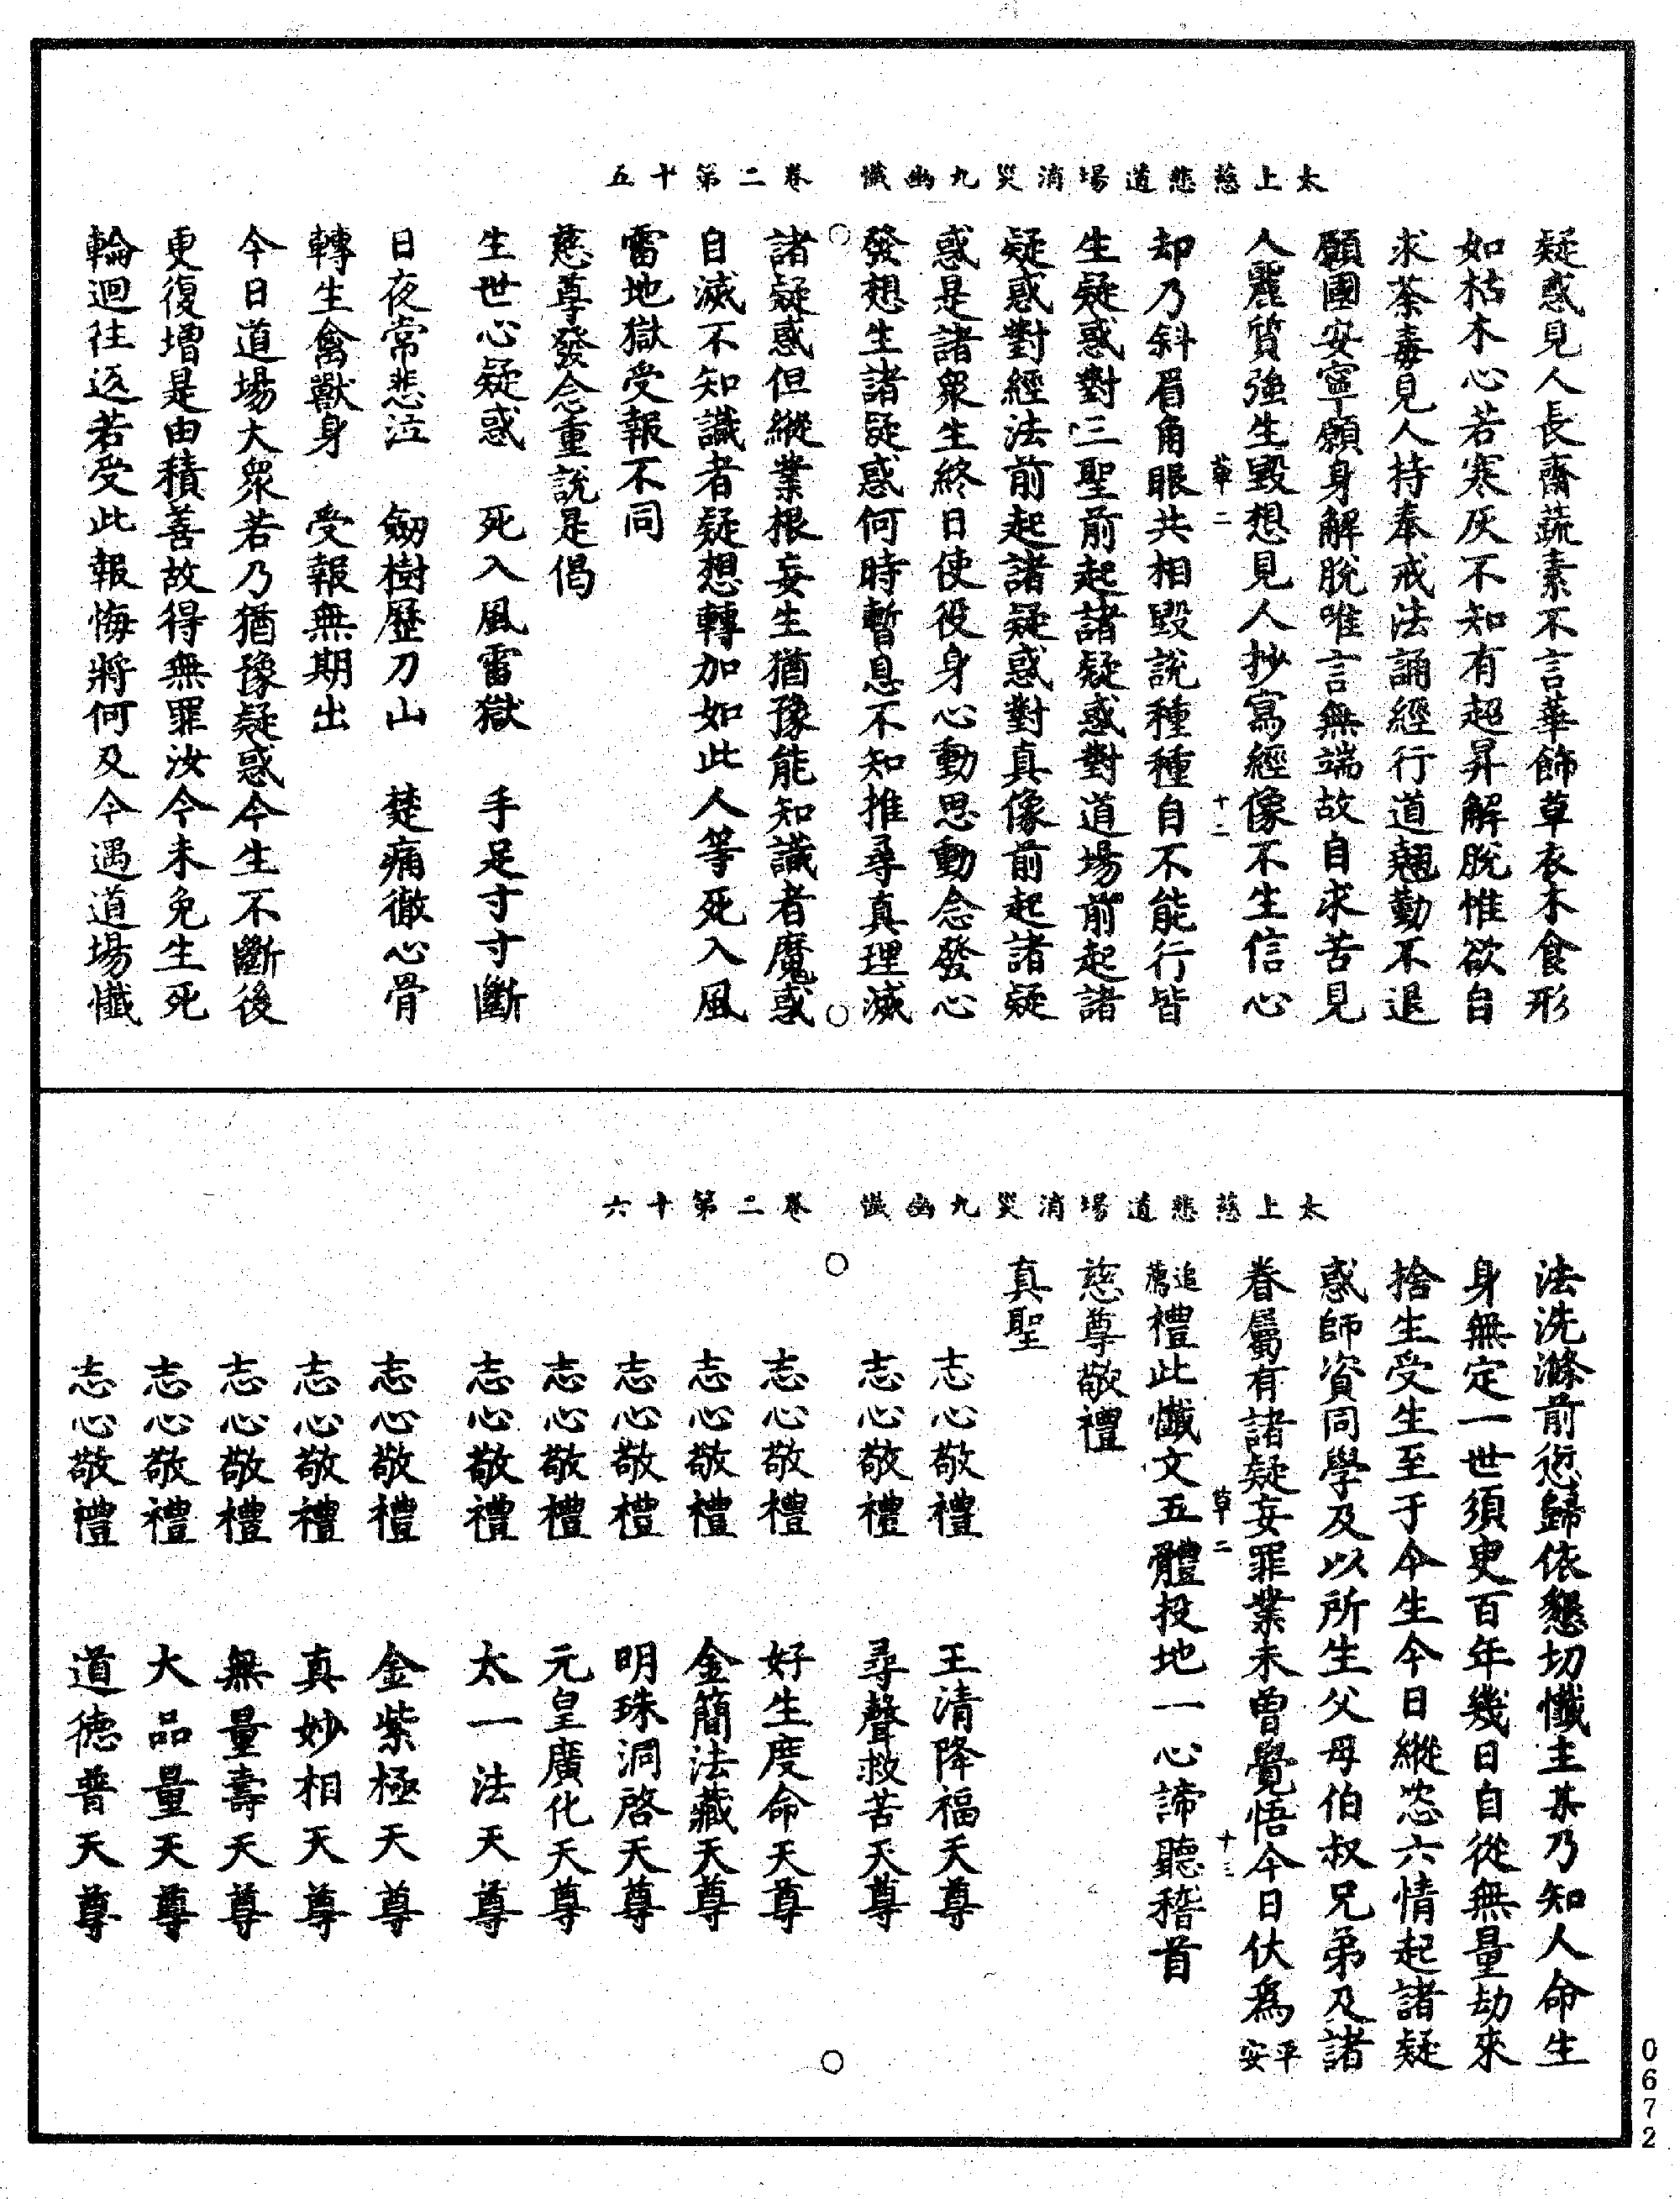 太上慈悲道場消災九幽懺　卷二第十五
疑惑見人長齋蔬素不言華飾草衣木食形
如枯木心若寒灰不知有超昇解脫惟欲自
求荼毒見人持奉戒法誦經行道翹勤不退
願國安寧願身解脫唯言無端故自求苦見
人麗質強生毀想見人抄寫經像不生信心
草二　十二
却乃斜眉角眼共相毀說種種自不能行皆
生疑惑對三聖前起諸疑惑對道場前起諸
疑惑對經法前起諸疑惑對真像前起諸疑
惑是諸衆生終日使役身心動思動念發心
發想生諸疑惑何時暫息不知推尋真理滅
諸疑惑但縱業根妄生猶豫能知識者魔惑
自滅不知識者疑想轉加如此人等死入風
雷地獄受報不同
慈尊發念重說是偈
生世心疑惑　死入風雷獄　手足寸寸斷
日夜常悲泣　劒樹歷刀山　楚痛徹心骨
轉生禽獸身　受報無期出
今日道場大衆若乃猶豫疑惑今生不斷後
更復增是由積善故得無罪汝今未免生死
輪迴往返若受此報悔將何及今遇道場懺
太上慈悲道場消災九幽懺　卷二第十六
法洗滌前愆歸依懇切懺主某乃知人命生
身無定一世須臾百年幾日自從無量劫來
捨生受生至于今生今日縱恣六情起諸疑
惑師資同學及以所生父母伯叔兄弟及諸
眷屬有諸疑妄罪業未曾覺悟今日伏爲平安
草二　十三
追薦禮此懺文五體投地一心諦聽稽首
慈尊敬禮
真聖
志心敬禮　王清降福天尊
志心敬禮　尋聲救苦天尊
志心敬禮　好生度命天尊
志心敬禮　金簡法藏天尊
志心敬禮　明珠洞啓天尊
志心敬禮　元皇廣化天尊
志心敬禮　太一法天尊
志心敬禮　金紫極天尊
志心敬禮　真妙相天尊
志心敬禮　無量壽天尊
志心敬禮　大品量天尊
志心敬禮　道德普天尊
0672